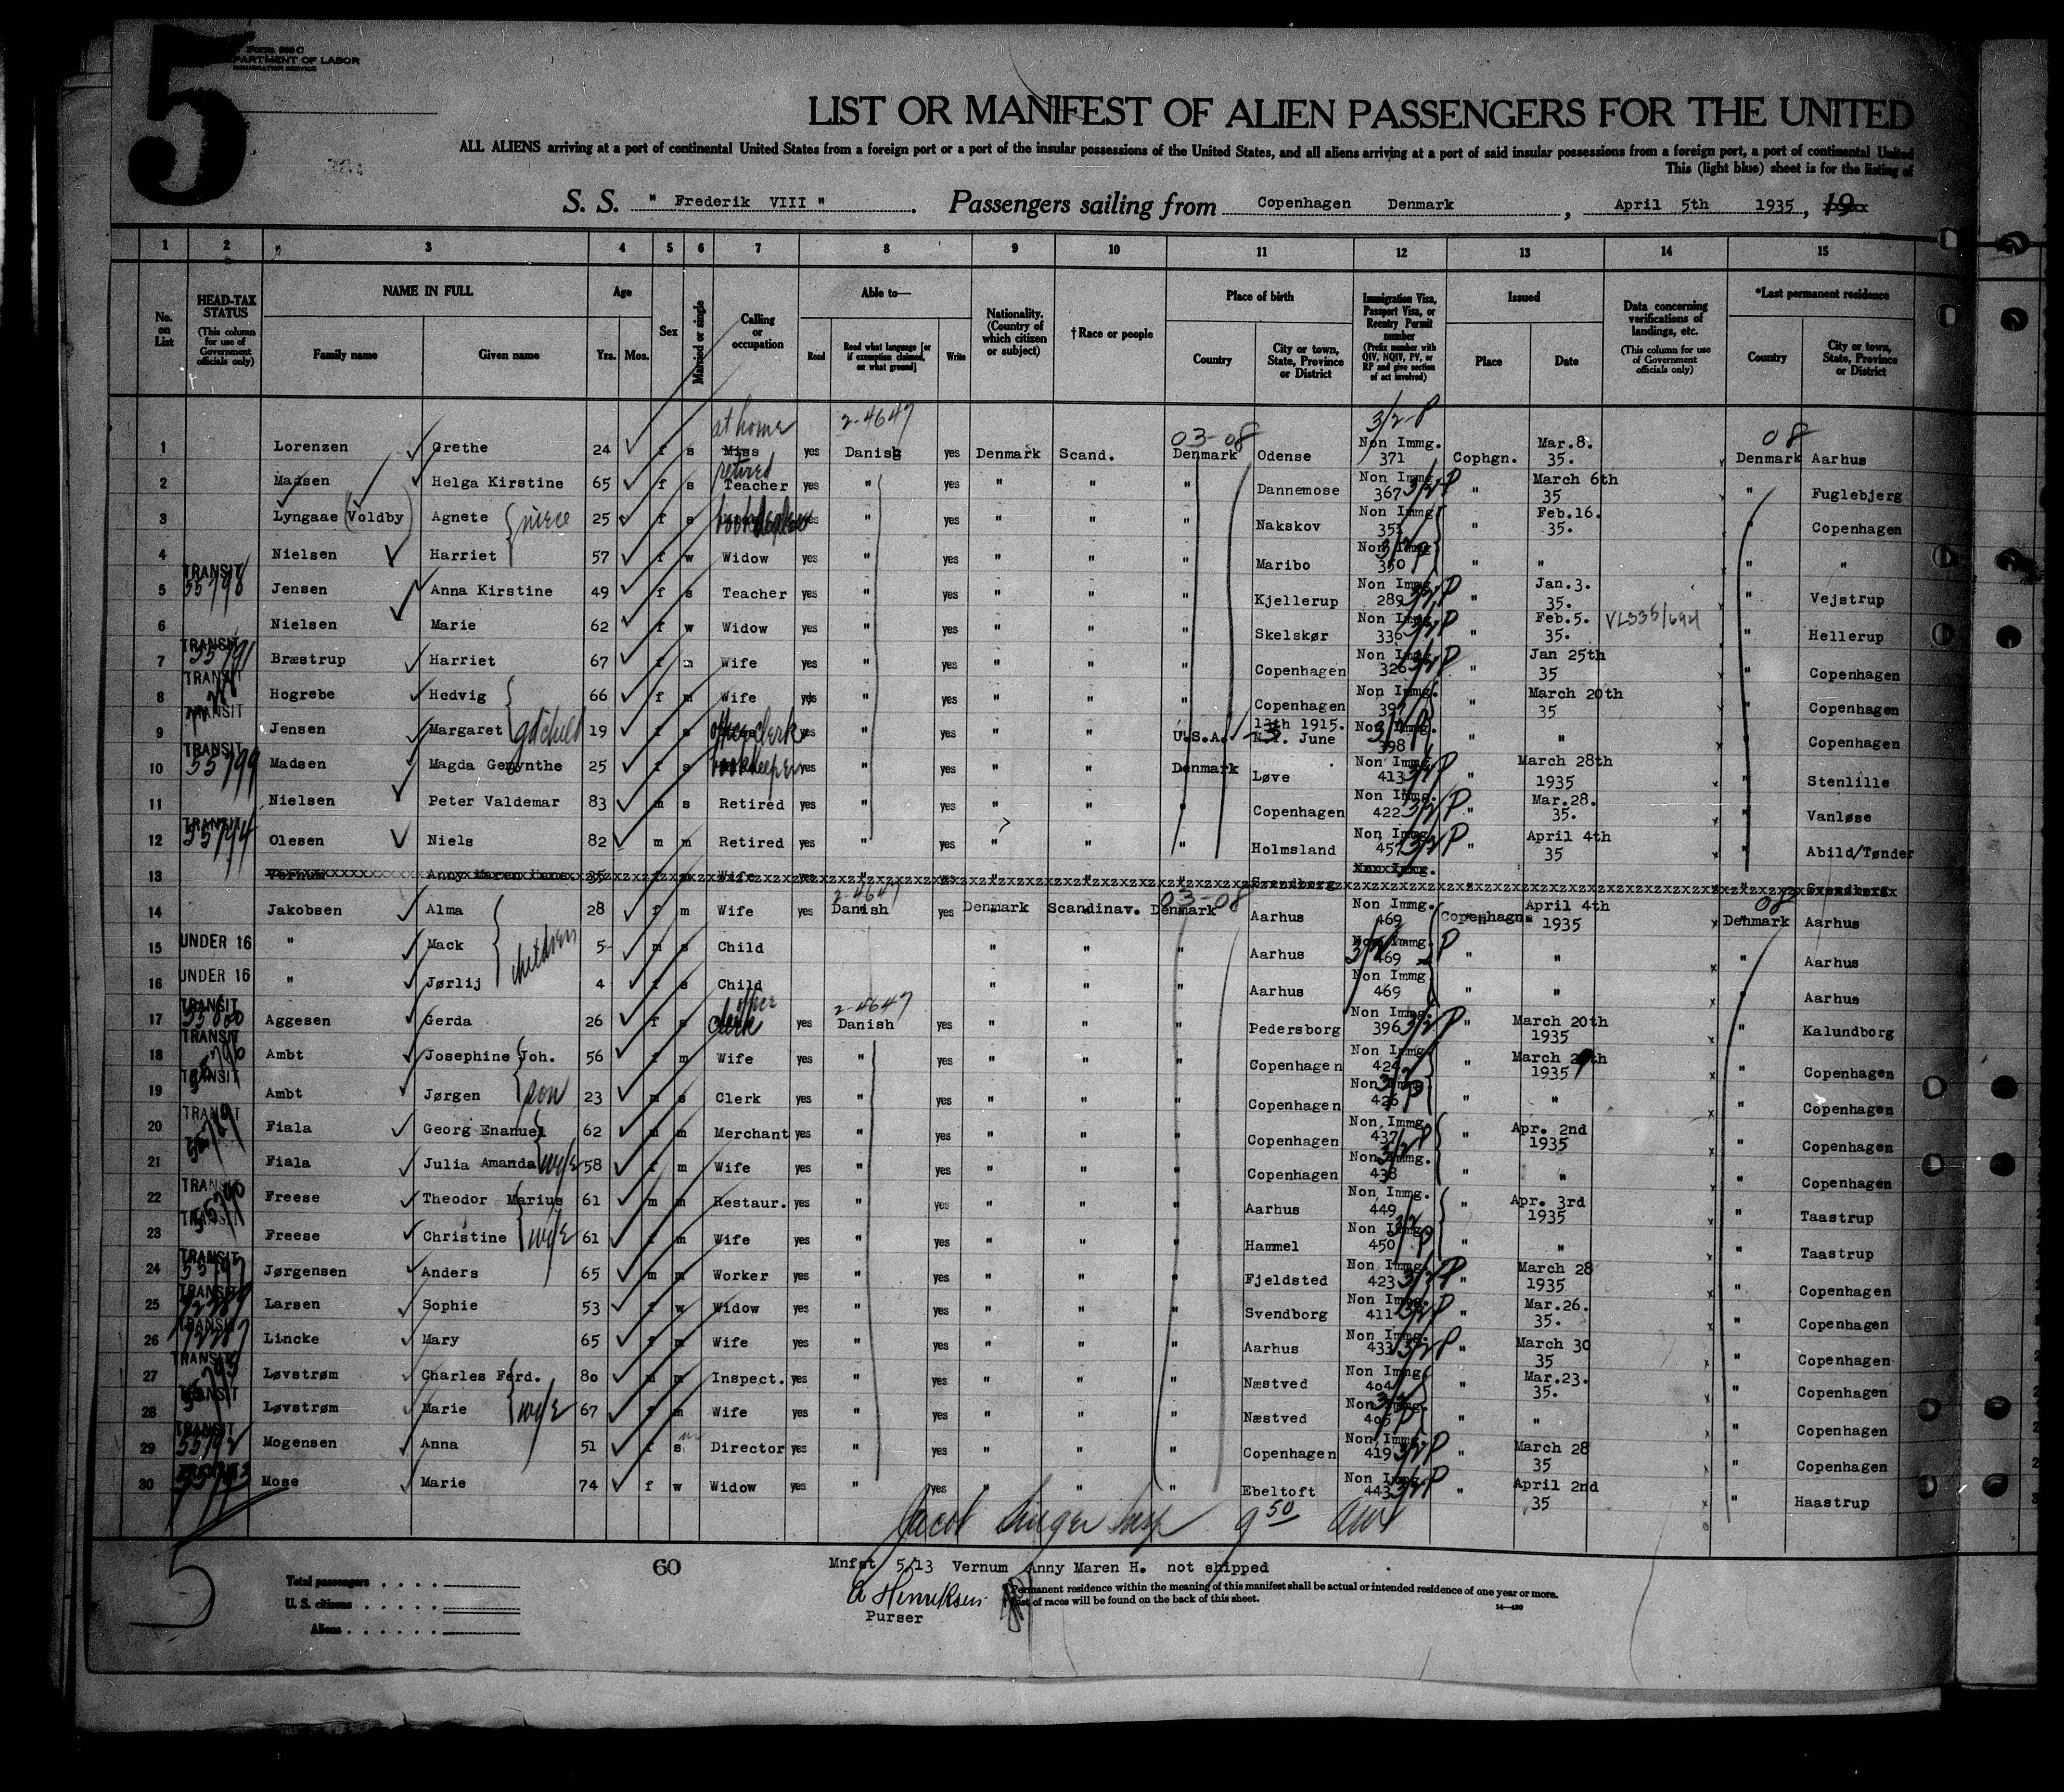 5
Form 500 C
DEPARTMENT OF LABOR
IMMIGRATION SERVICE
LIST OR MANIFEST OF ALIEN PASSENGERS FOR THE UNITED
ALL ALIENS arriving at a port of continental United States from a foreign port or a port of the insular possessions of the United States, and all aliens arriving at a port of said insular possessions from a foreign port, a port of continental United
This (light blue) sheet is for the listing of
S. S. " Frederik VIII ". Passengers sailing from Copenhagen Denmark, April 5th 1935, 19
1 2 3 4 5 6 7 8 9 10 11 12 13 14 15
No. on List
HEAD-TAX STATUS (This column for use of Government officials only)
NAME IN FULL Family name Given name
Age Yrs. Mos.
Sex
Married or single
Calling or occupation
Able to— Read Read what language [or if exemption claimed, on what ground] Write
Nationality. (Country of which citizen or subject)
†Race or people
Place of birth Country City or town, State, Province or District
Immigration Visa, Passport Visa, or Reentry Permit number (Prefix number with QIV, NQIV, PV, or RP and give section of act involved)
Issued Place Date
Data concerning verifications of landings, etc. (This column for use of Government officials only)
*Last permanent residence Country City or town, State, Province or District
at home 2-4647 03-08 3/2-P 08
1 Lorenzen Grethe 24 f s Miss yes Danish yes Denmark Scand. Denmark Odense Non Immg. 371 Cophgn. Mar.8. 35. Denmark Aarhus
retired
2 Madsen Helga Kirstine 65 f s Teacher yes " yes " " " Dannemose Non Immg 367 3/2P " March 6th 35 " Fuglebjerg
3 Lyngaae (Voldby) Agnete niece 25 f s bookkeeper yes " yes " " " Nakskov Non Immg " Feb.16. 35. " Copenhagen
4 Nielsen Harriet 57 f w Widow yes " yes " " " Maribo Non Immg 350 " " " "
5 TRANSIT 55798 Jensen Anna Kirstine 49 f s Teacher yes " yes " " " Kjellerup Non Immg. 289 3/2P " Jan.3. 35. " Vejstrup
6 Nielsen Marie 62 f w Widow yes " yes " " " Skelskør Non Immg 336 3/2P " Feb.5. 35. " Hellerup
7 TRANSIT 55791 Bræstrup Harriet 67 f m Wife yes " yes " " " Copenhagen Non Immg 326 3/2P " Jan 25th 35 " Copenhagen
8 TRANSIT Hogrebe Hedvig 66 f m Wife yes " yes " " " Copenhagen Non Immg. 397 " March 20th 35 " Copenhagen
9 TRANSIT Jensen Margaret gdchild 19 f s office clerk yes " yes " " U.S.A. 13th 1915. N.Y. June Non Immg. 398 " " " Copenhagen
10 TRANSIT 55799 Madsen Magda Gemynthe 25 f s bookkeeper yes " yes " " Denmark Løve Non Immg 413 3/2P " March 28th 1935 " Stenlille
11 Nielsen Peter Valdemar 83 m s Retired yes " yes " " " Copenhagen Non Immg. 422 3/2P " Mar.28. 35. " Vanløse
12 TRANSIT 55794 Olesen Niels 82 m m Retired yes " yes " " " Holmsland Non Immg 457 3/2P " April 4th 35 " Abild/Tønder
13 Vernum Anny Maren Hans. 35 f m Wife " yes " " " Svendborg Non Immg. " " Svendborg
2-4647 03-08 08
14 Jakobsen Alma 28 f m Wife yes Danish yes Denmark Scandinav. Denmark Aarhus Non Immg. 469 Copenhagn April 4th 1935 Denmark Aarhus
15 UNDER 16 " Mack children 5 m s Child " " " Aarhus Non Immg. 469 3/2 P " " " Aarhus
16 UNDER 16 " Jørlij 4 f s Child " " " Aarhus Non Immg 469 " " " Aarhus
17 TRANSIT 55800 Aggesen Gerda 26 f s office clerk yes 2-4647 Danish yes " " " Pedersborg Non Immg. 396 3/2P " March 20th 1935 " Kalundborg
18 TRANSIT Ambt Josephine Joh. 56 f m Wife yes " yes " " " Copenhagen Non Immg " March th 1935 " Copenhagen
19 TRANSIT Ambt Jørgen son 23 m s Clerk yes " yes " " " Copenhagen Non Immg " " " Copenhagen
20 TRANSIT Fiala Georg Enanuel 62 m m Merchant yes " yes " " " Copenhagen Non Immg. 437 " Apr. 2nd 1935 " Copenhagen
21 Fiala Julia Amanda wife 58 f m Wife yes " yes " " " Copenhagen Non Immg. 438 " " " Copenhagen
22 TRANSIT Freese Theodor Marius 61 m m Restaur. yes " yes " " " Aarhus Non Immg. 449 " Apr. 3rd 1935 " Taastrup
23 TRANSIT Freese Christine wife 61 f m Wife yes " yes " " " Hammel Non Immg 450 " " " Taastrup
24 TRANSIT 55797 Jørgensen Anders 65 m m Worker yes " yes " " " Fjeldsted Non Immg. 423 3/2P " March 28 1935 " Copenhagen
25 TRANSIT Larsen Sophie 53 f w Widow yes " yes " " " Svendborg Non Immg. 411 3/2P " Mar.26. 35. " Copenhagen
26 TRANSIT Lincke Mary 65 f m Wife yes " yes " " " Aarhus Non Immg. 433 3/2P " March 30 35 " Copenhagen
27 TRANSIT Løvstrøm Charles Ferd. 80 m m Inspect. yes " yes " " " Næstved Non Immg 404 " Mar.23. 35. " Copenhagen
28 TRANSIT Løvstrøm Marie wife 67 f m Wife yes " yes " " " Næstved Non Immg. 405 " " " Copenhagen
29 TRANSIT 55792 Mogensen Anna 51 f s m Director yes " yes " " " Copenhagen Non Immg. 419 3/2P " March 28 35 " Copenhagen
30 55793 Mose Marie 74 f w Widow yes " yes " " " Ebeltoft Non Immg. 443 3/2P " April 2nd 35 " Haastrup
Jacob Insp 9 50 am
5
60
Mnfst 5/13 Vernum Anny Maren H. not shipped
Total passengers
U. S. citizens
Aliens
Henriksen
Purser
*Permanent residence within the meaning of this manifest shall be actual or intended residence of one year or more.
†List of races will be found on the back of this sheet.
14—430